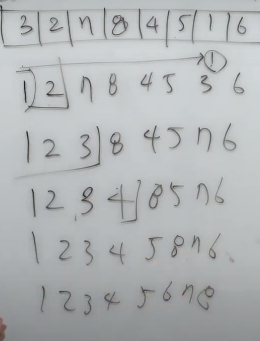 3 2 7 8 4 5 1 6
①
1 2 7 8 4 5 3 6
1 2 3 8 4 5 7 6
1 2 3 4 8 5 7 6
1 2 3 4 5 8 7 6
1 2 3 4 5 6 7 8